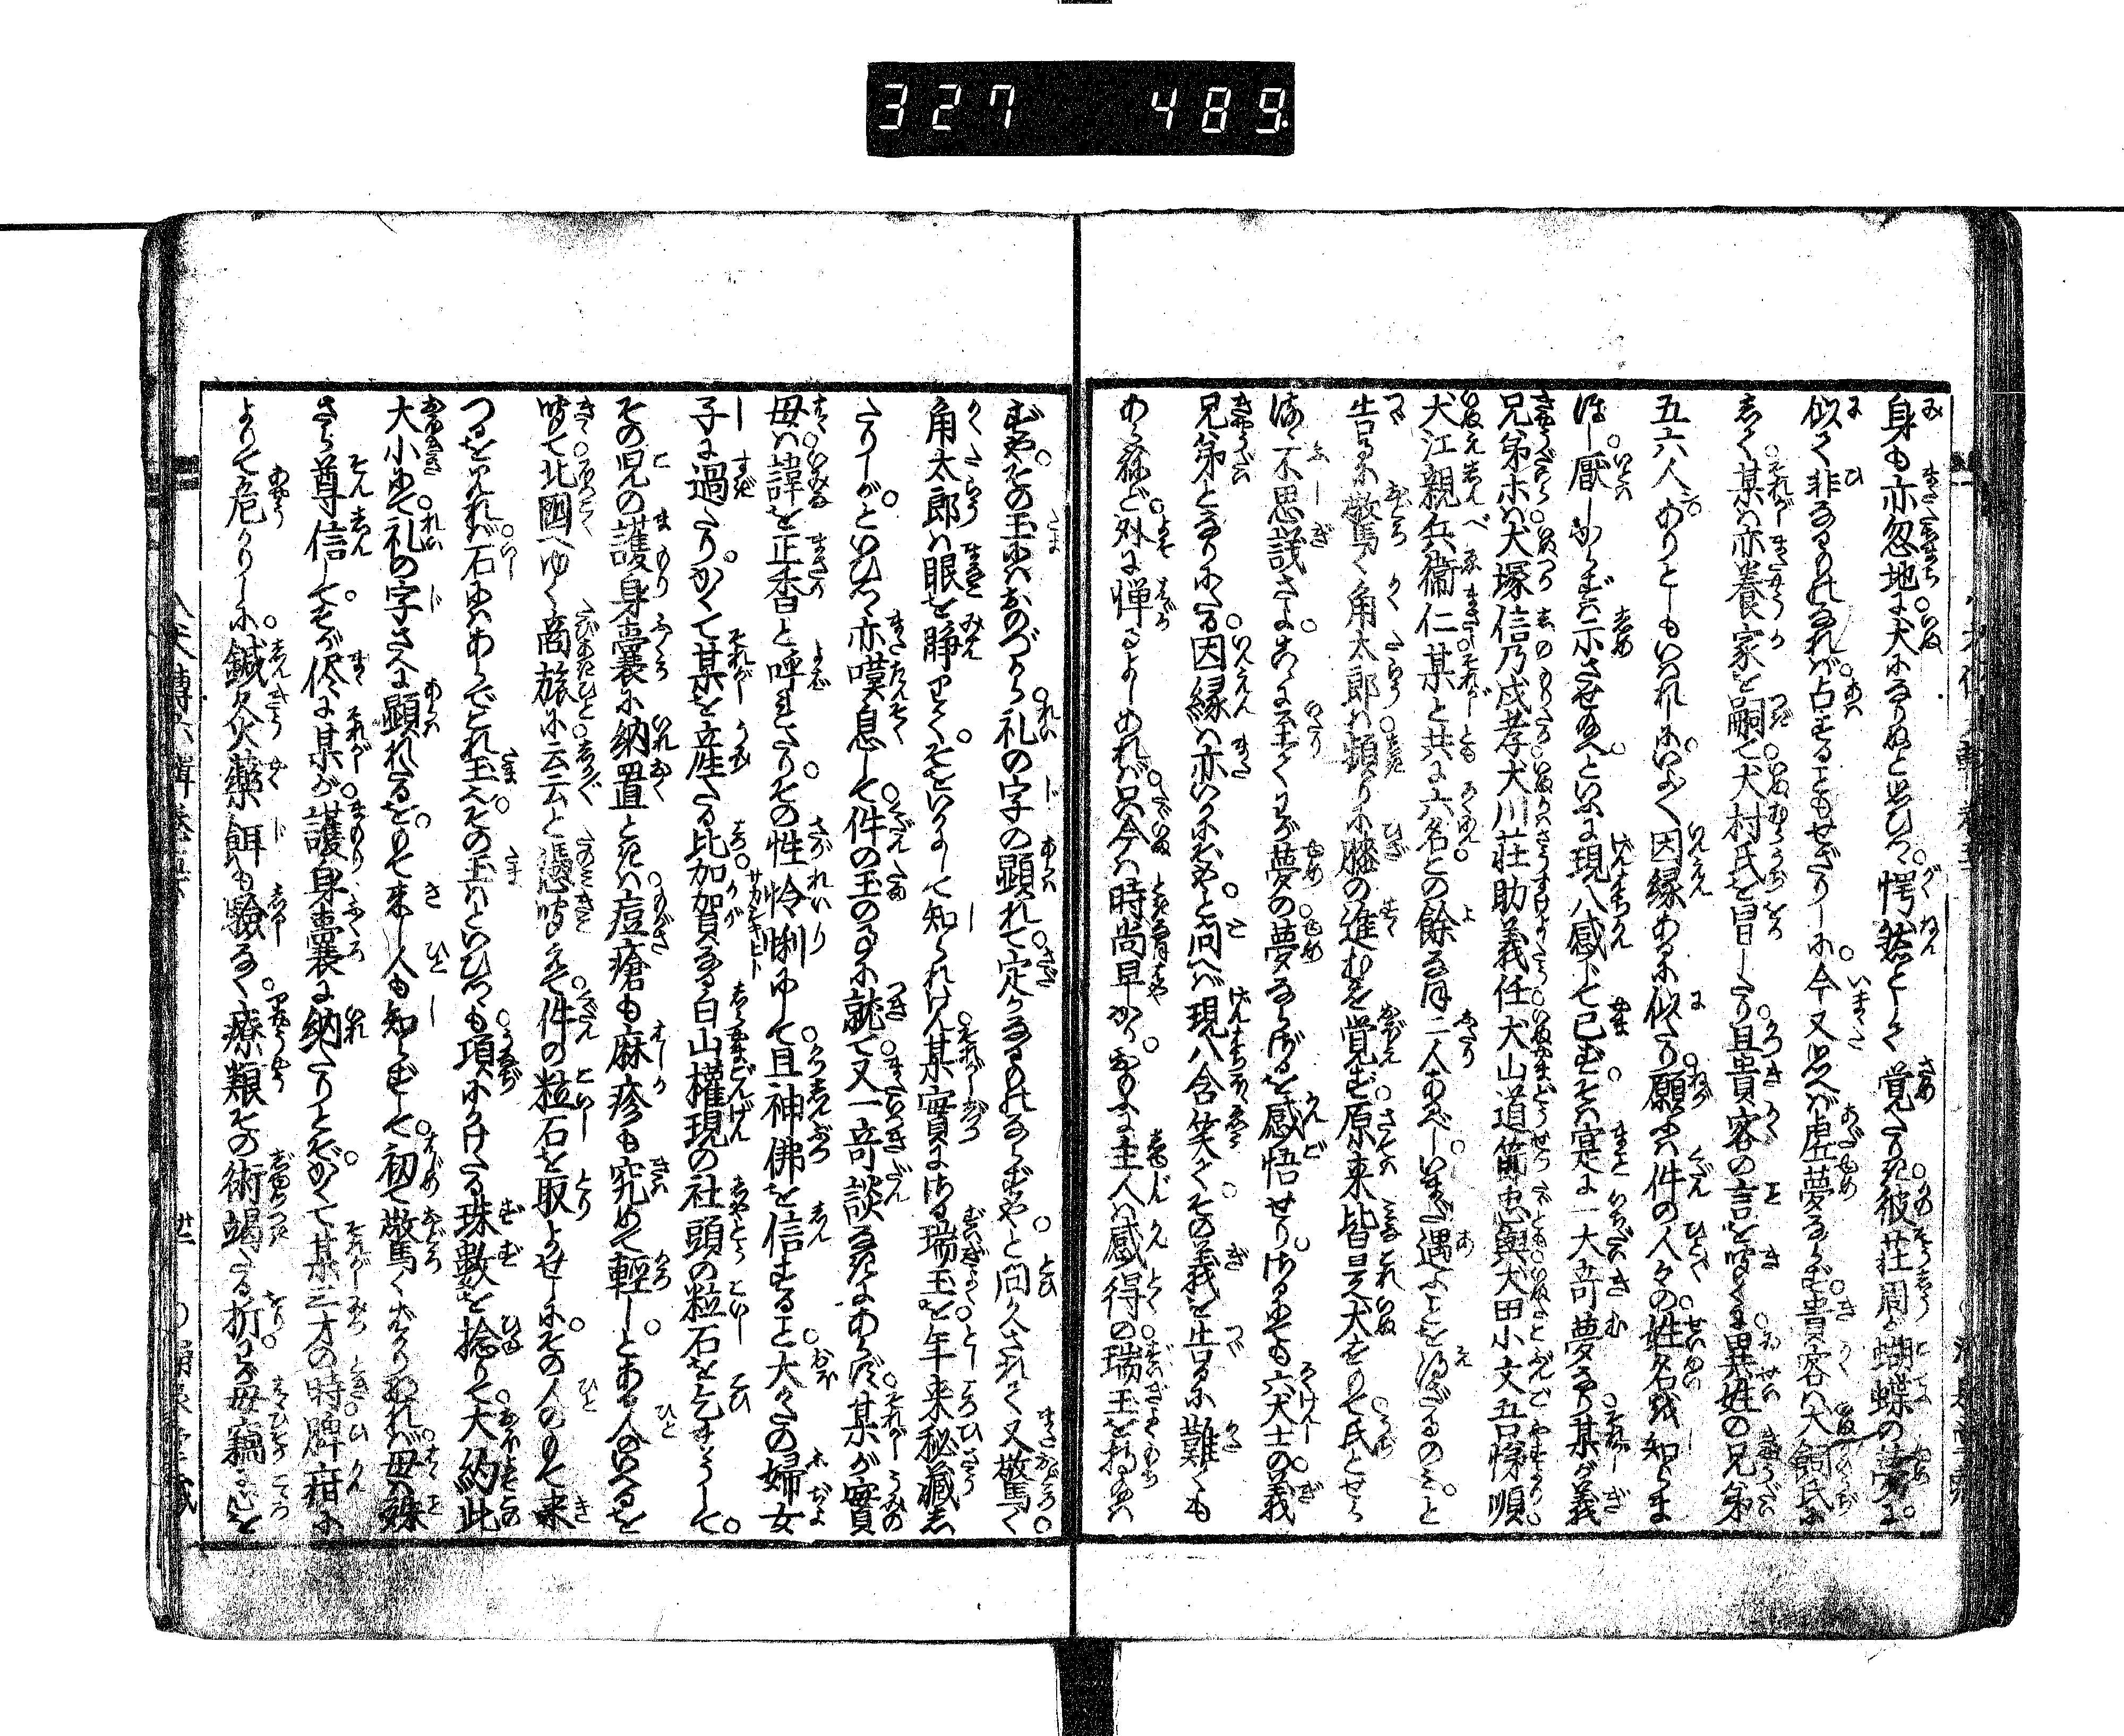 327 489
身も亦忽地に犬になりぬと思ひつ。愕然として覚たりき。彼荘周が蝴蝶の夢に。
似て非なるものなれば。占することもせざりしに。今又思へば虚夢ならず。貴客は犬飼氏に
して。某は亦養家を嗣て。犬村氏を冒したり。且貴客の言を聴くに。異姓の兄弟
五六人ありとしもいはれしに。いよ〳〵因縁あるに似たり。願ふは件の人々の。姓名を知らま
ほし。厭しからずは示させ給へ。といふに現八感じて已ず。そは寔に一大奇夢なり。某が義
兄弟ホは。犬塚信乃戍孝。犬川荘助義任。犬山道節忠與。犬田小文吾悌順。
犬江親兵衛仁。某と共に六名。この餘なほ二人あるべし。いまだ遇ふことを得ざるのみ。と
告るに驚く角太郎は。頻りに膝の進むを覚ず。原来皆是犬をもて。氏とせら
るゝ不思議さよ。こゝに至りてわが夢の。夢ならざるを感悟せり。さるにても六犬士の。義
兄弟となりにたる。因縁は亦いかにぞや。と問へば現八含笑て。その義を告るに難くも
あらねど。外に憚るよしあれば。只今は時尚早かり。おもふに主人は感得の。瑞玉を持給は
ずや。その玉にはおのづから。礼の字の顕れて。定かなるものならずや。と問へされて又驚く。
角太郎は眼を睜りて。そをいかにして知られけん。某實にさる瑞玉を。年来秘蔵し
たりしが。といひつゝ亦嘆息して。件の玉の事に就て。又一奇談なきにあらず。某が實
母は。諱を正香と呼れたり。その性怜悧にして。且神佛を信ずること。大かたの婦女
子に過たり。かくて某を産たる比。加賀なる白山權現の社頭の粒石を乞まうして。
その児の護身嚢に納置ときは。痘瘡も麻疹も究めて輕し。とある人のいへるを
聴て。北國へゆく商旅に。云云と憑み聴えて。件の粒石を取よせしに。その人のもて来
つるを見れば。石にはあらでこれ玉也。その玉はといひつゝも。項にかけたる珠數を捻りて。大約此
大小にて。礼の字さへに顕れたるを。もて来し人も知らずして。初て驚くばかりなれば。母は殊
さら尊信して。そが侭に某が。護身嚢に納たりとぞ。かくて某三才の時。脾疳に
よりて危かりしに。鍼灸薬餌も驗なく。療類その術竭たる折。わが母竊に心を
八犬傳六輯巻五下 廿二